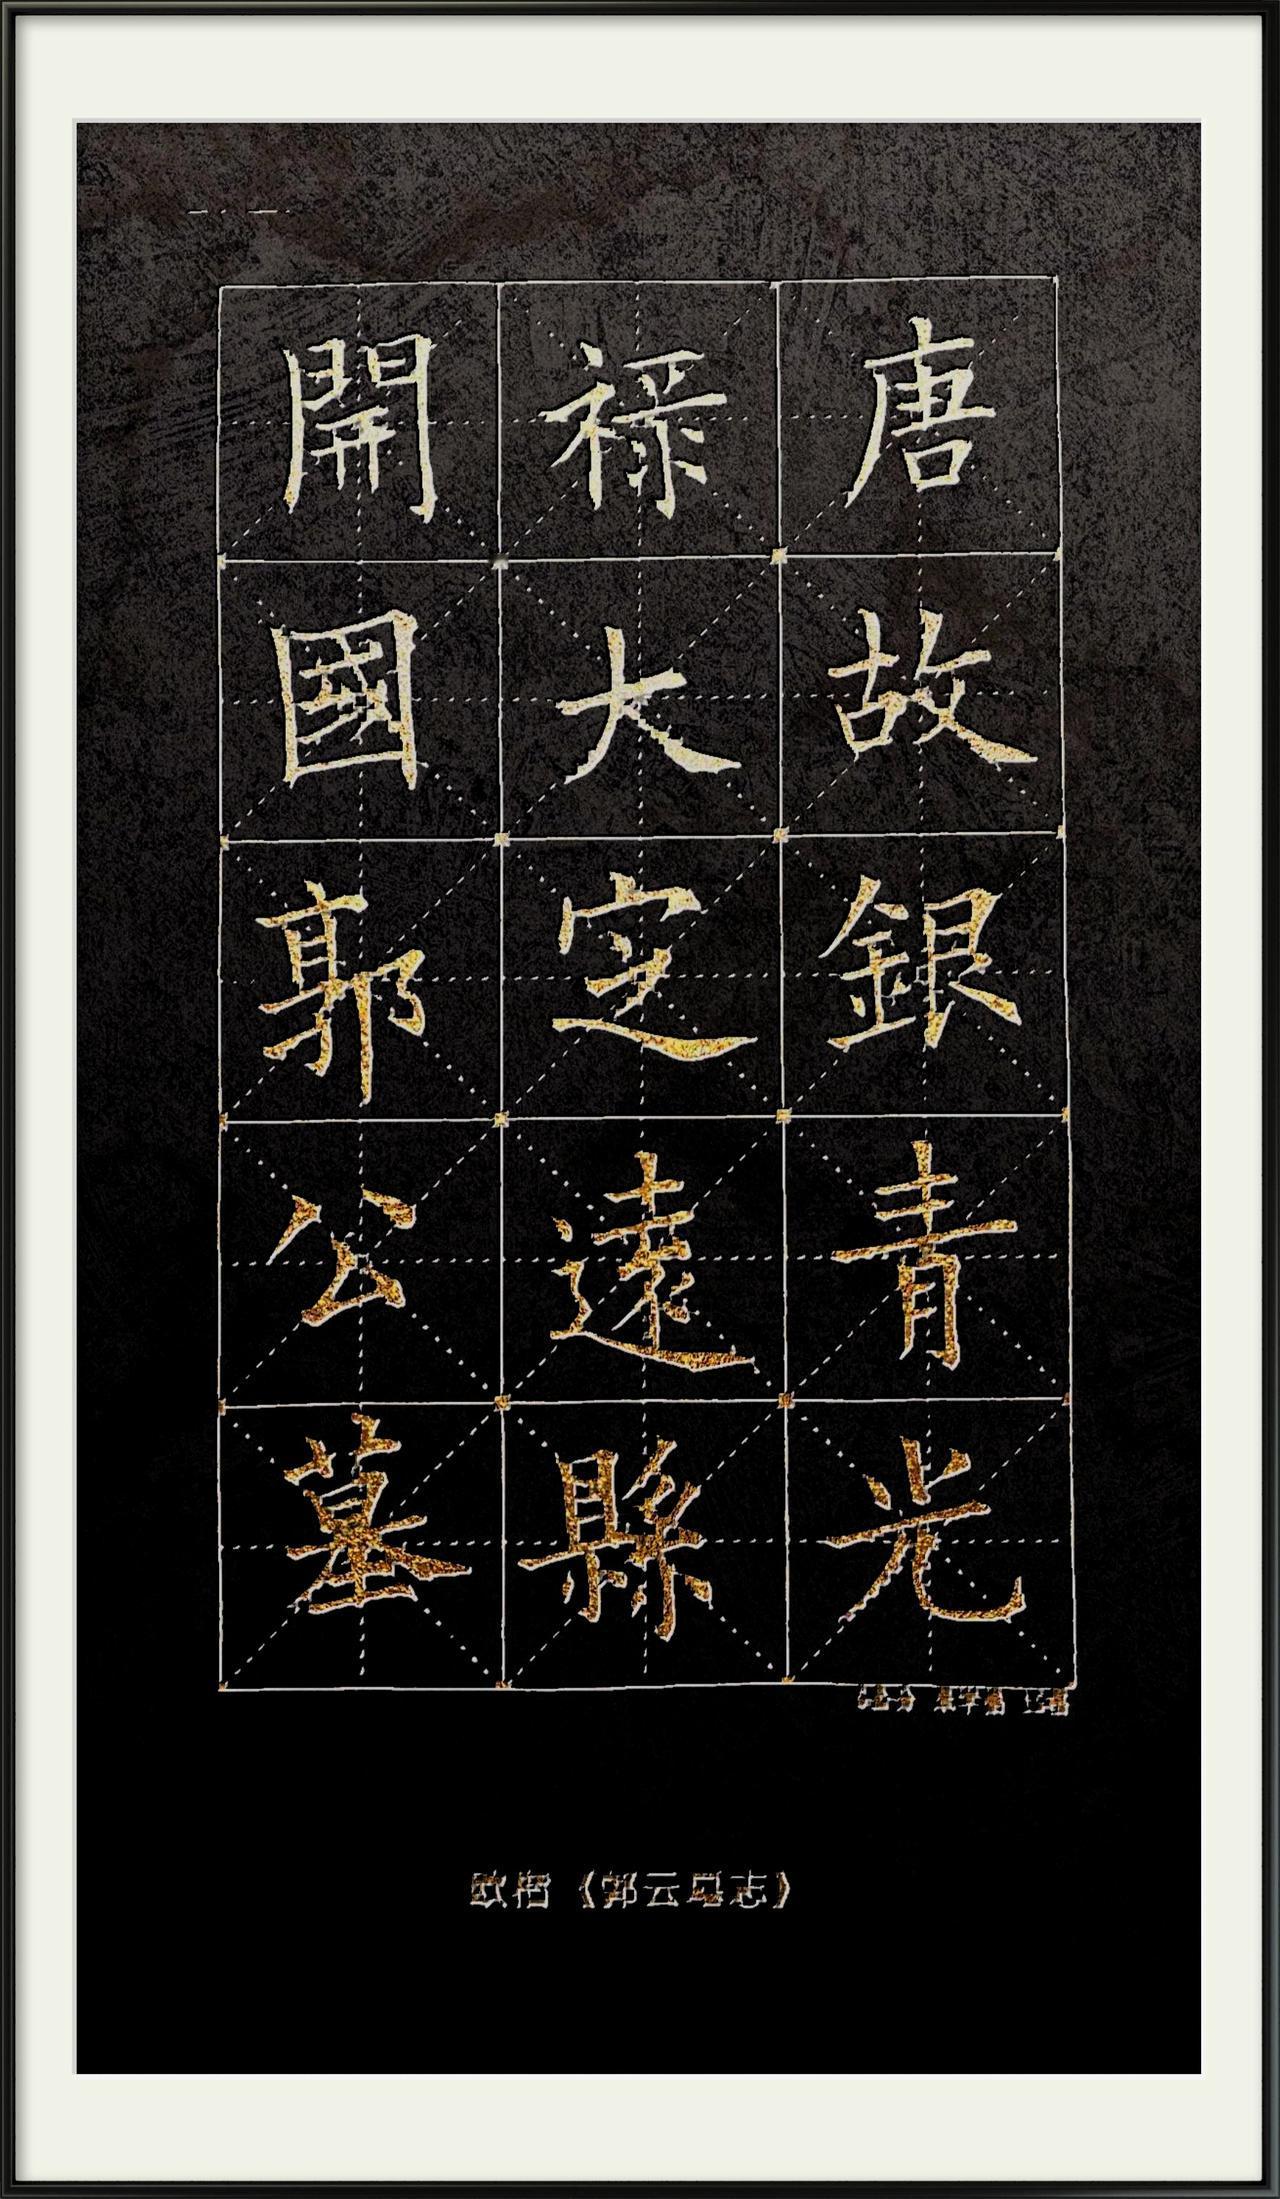 唐故銀青光
祿大定遠縣
開國郭公墓
欧楷《郭云墓志》